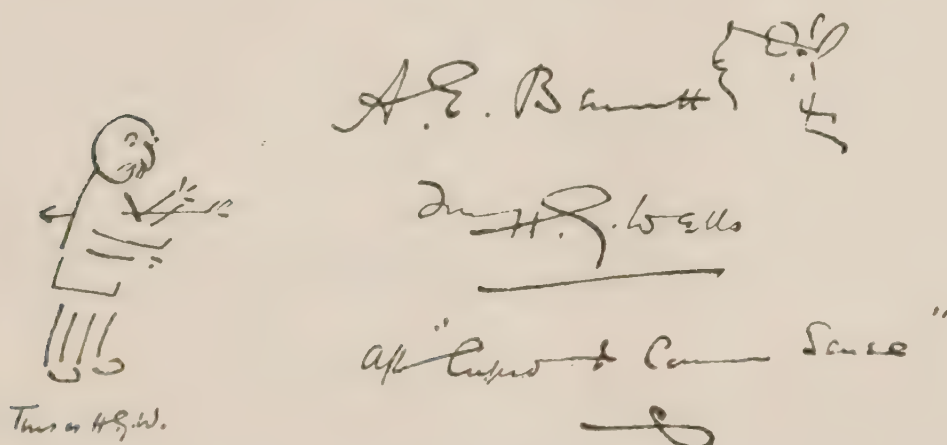 A. E. Bennett
from H. G. Wells
after "Cupid & Common Sense"
This is H.G.W.